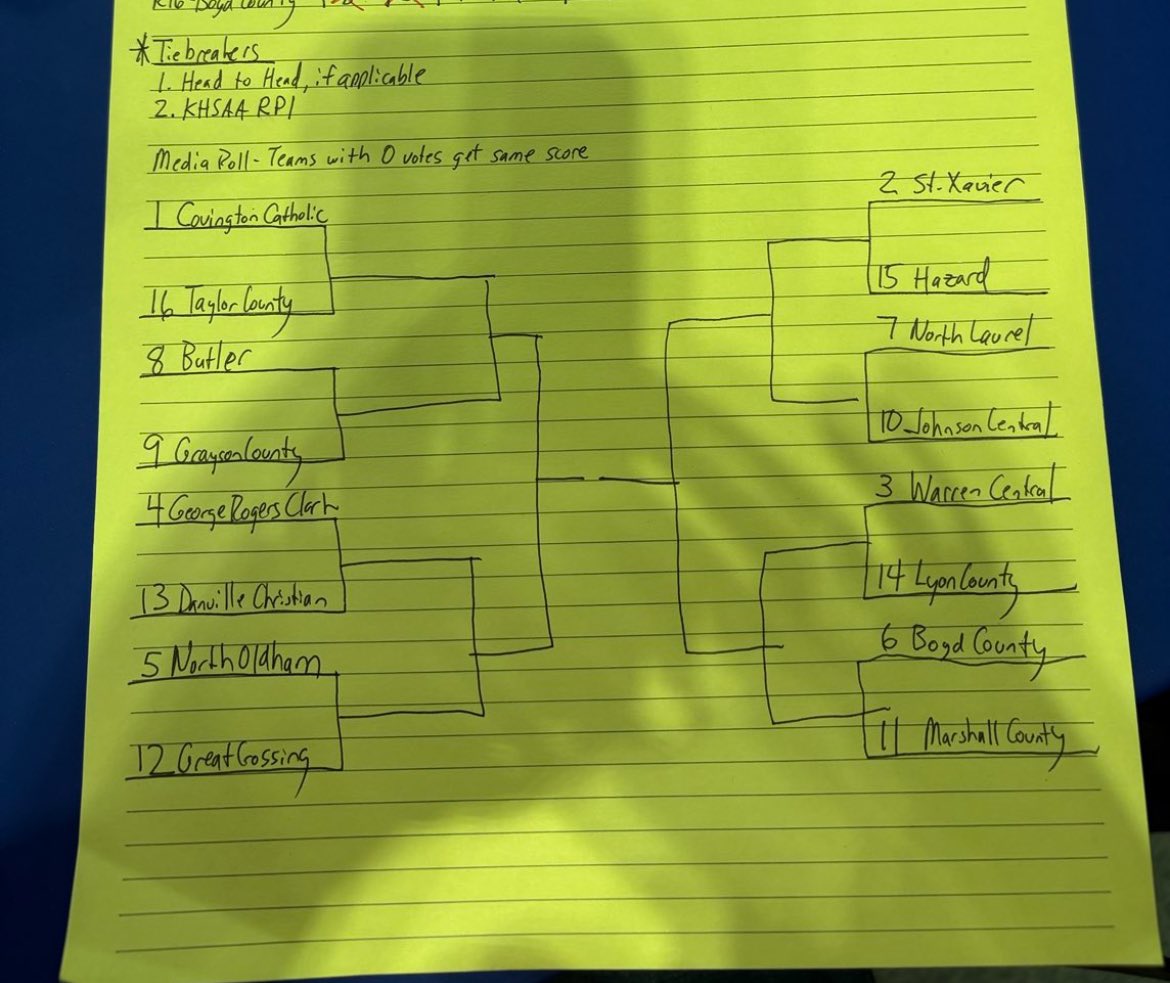 R16 Boyd County
*Tiebreakers
1. Head to Head, if applicable
2. KHSAA RPI
Media Poll - Teams with 0 votes get same score
1 Covington Catholic
16 Taylor County
8 Butler
9 Grayson County
4 George Rogers Clark
13 Danville Christian
5 North Oldham
12 Great Crossing
2 St. Xavier
15 Hazard
7 North Laurel
10 Johnson Central
3 Warren Central
14 Lyon County
6 Boyd County
11 Marshall County